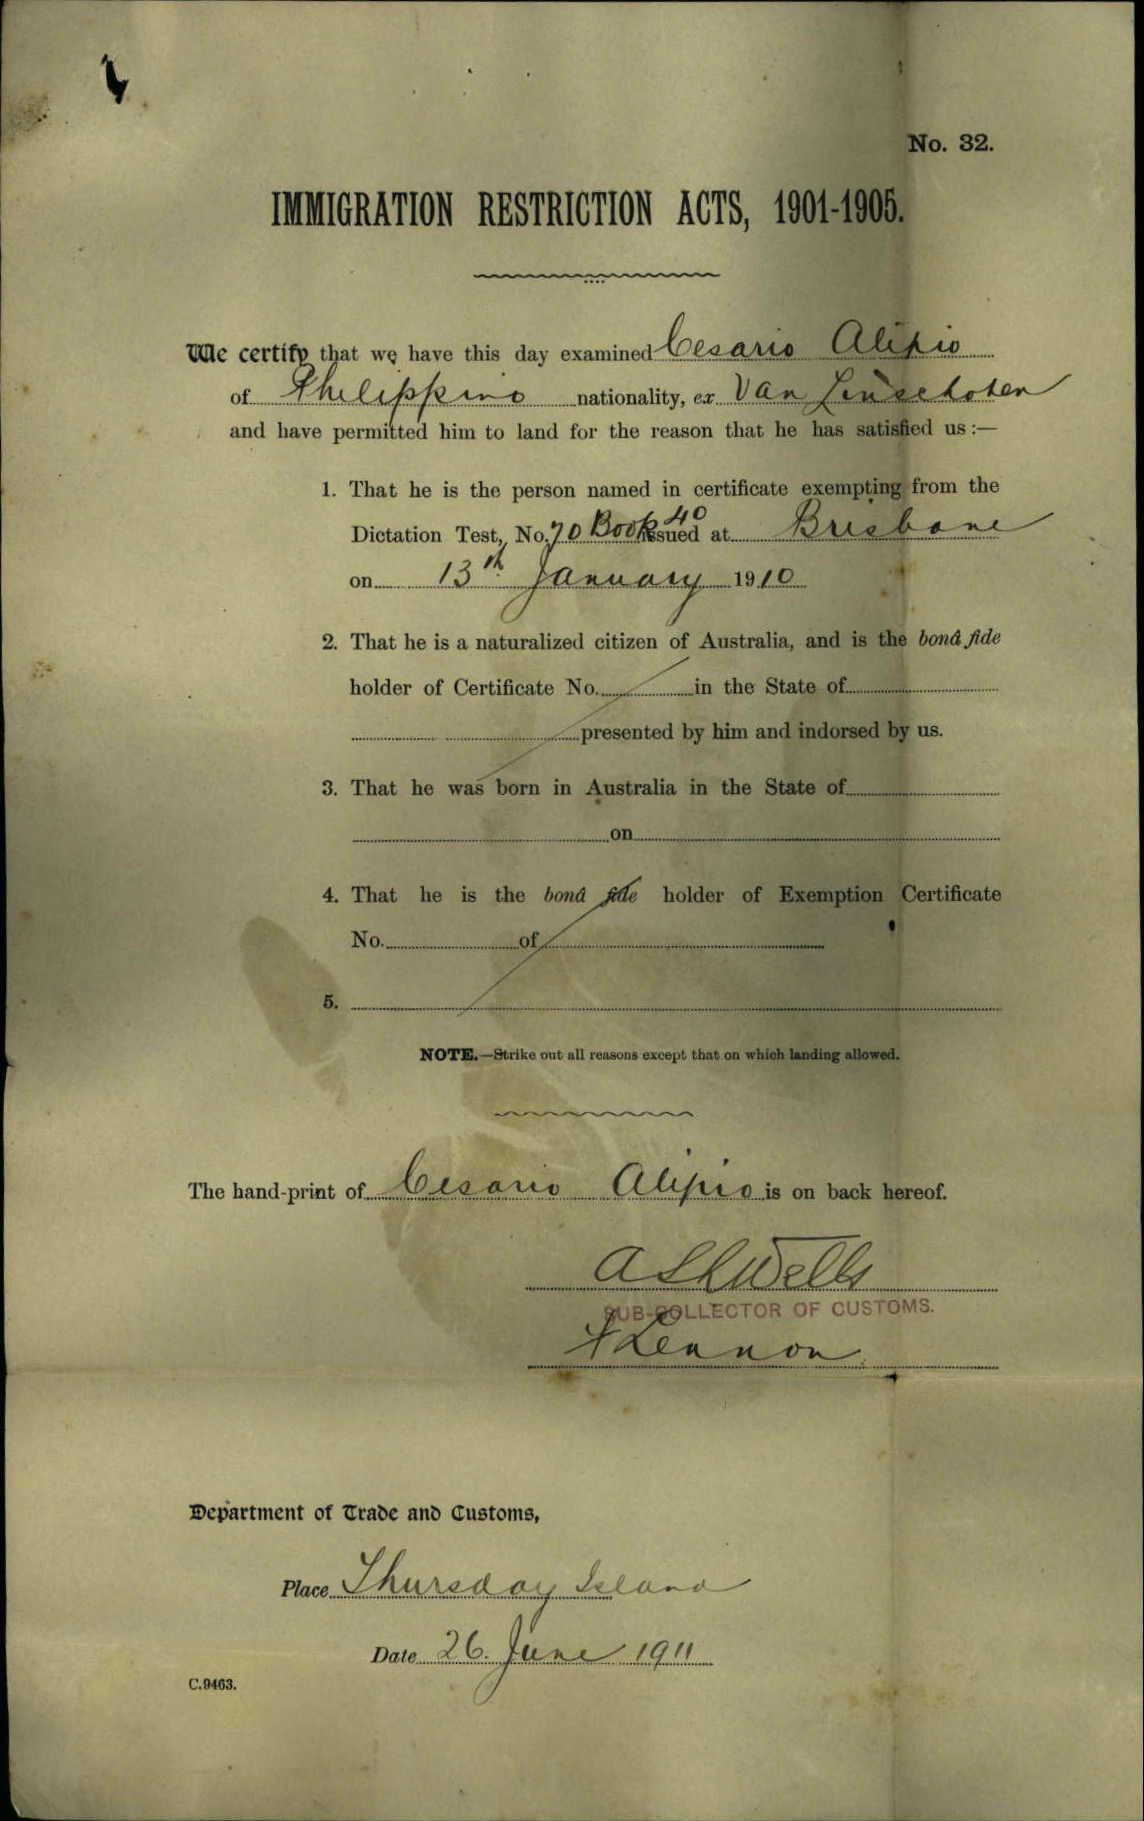 No. 32.
IMMIGRATION RESTRICTION ACTS, 1901-1905.
We certify that we have this day examined Cesario Alipio
of Philippino nationality, ex Van Linschoten
and have permitted him to land for the reason that he has satisfied us :—
1. That he is the person named in certificate exempting from the
Dictation Test, No. 70 Book 40 issued at Brisbane
on 13th January 1910
2. That he is a naturalized citizen of Australia, and is the bonâ fide
holder of Certificate No. in the State of
presented by him and indorsed by us.
3. That he was born in Australia in the State of
on
4. That he is the bonâ fide holder of Exemption Certificate
No. of
5.
NOTE.—Strike out all reasons except that on which landing allowed.
The hand-print of Cesario Alipio is on back hereof.
Wells
SUB-COLLECTOR OF CUSTOMS.
Lennon
Department of Trade and Customs,
Place Thursday Island
Date 26. June 1911
C.9463.